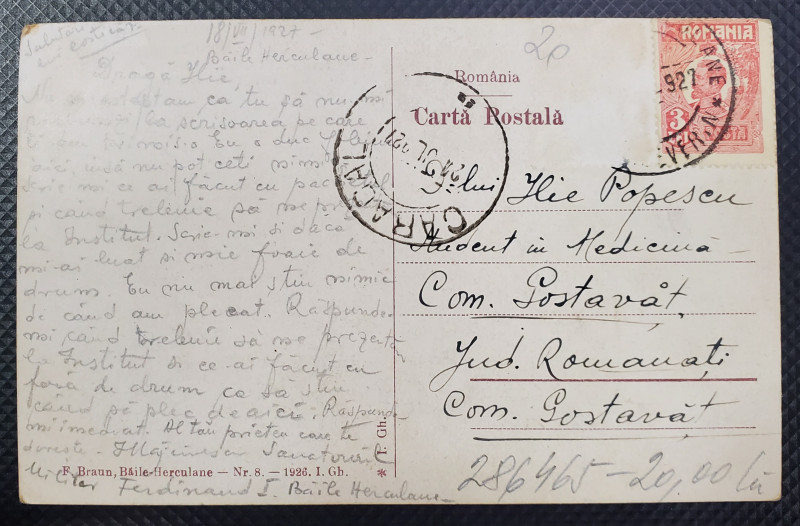 18/VII/1927
Băile Herculane -
Dragă Ilie,
ca tu să nu-mi
la scrisoarea pe care
Eu o duc
aici însă nu pot ceti nimic
Scrie-mi ce ai făcut cu
și când trebuie să ne
la Institut. Scrie-mi și dacă
mi-ai luat și mie foaie de
drum. Eu nu mai știu nimic
de când am plecat. Răspunde-
mi când trebuie să ne prezentăm
la Institut și ce-ai făcut cu
foaia de drum ca să știu
când să plec de aici. Răspunde-
mi imediat. Al tău prieten care te
dorește. Sanatoriul
Militar Ferdinand I. Băile Herculane -
F. Braun, Băile-Herculane – Nr. 8. – 1926. I. Gh.
* F. Gh. *
20
România
Cartă Postală
CARACAL
24 IUL 927
ROMANIA
3
927
ANE * SEVERIN
lui Ilie Popescu
Student în Medicină -
Com. Gostavăț
Jud. Romanați
Com. Gostavăț
286465 - 20,00 lei